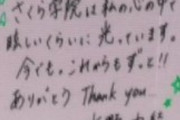 さくら学院は私の心の中で
眩しいくらいに光っています。
今でも。これからもずっと!!
ありがとう Thank you